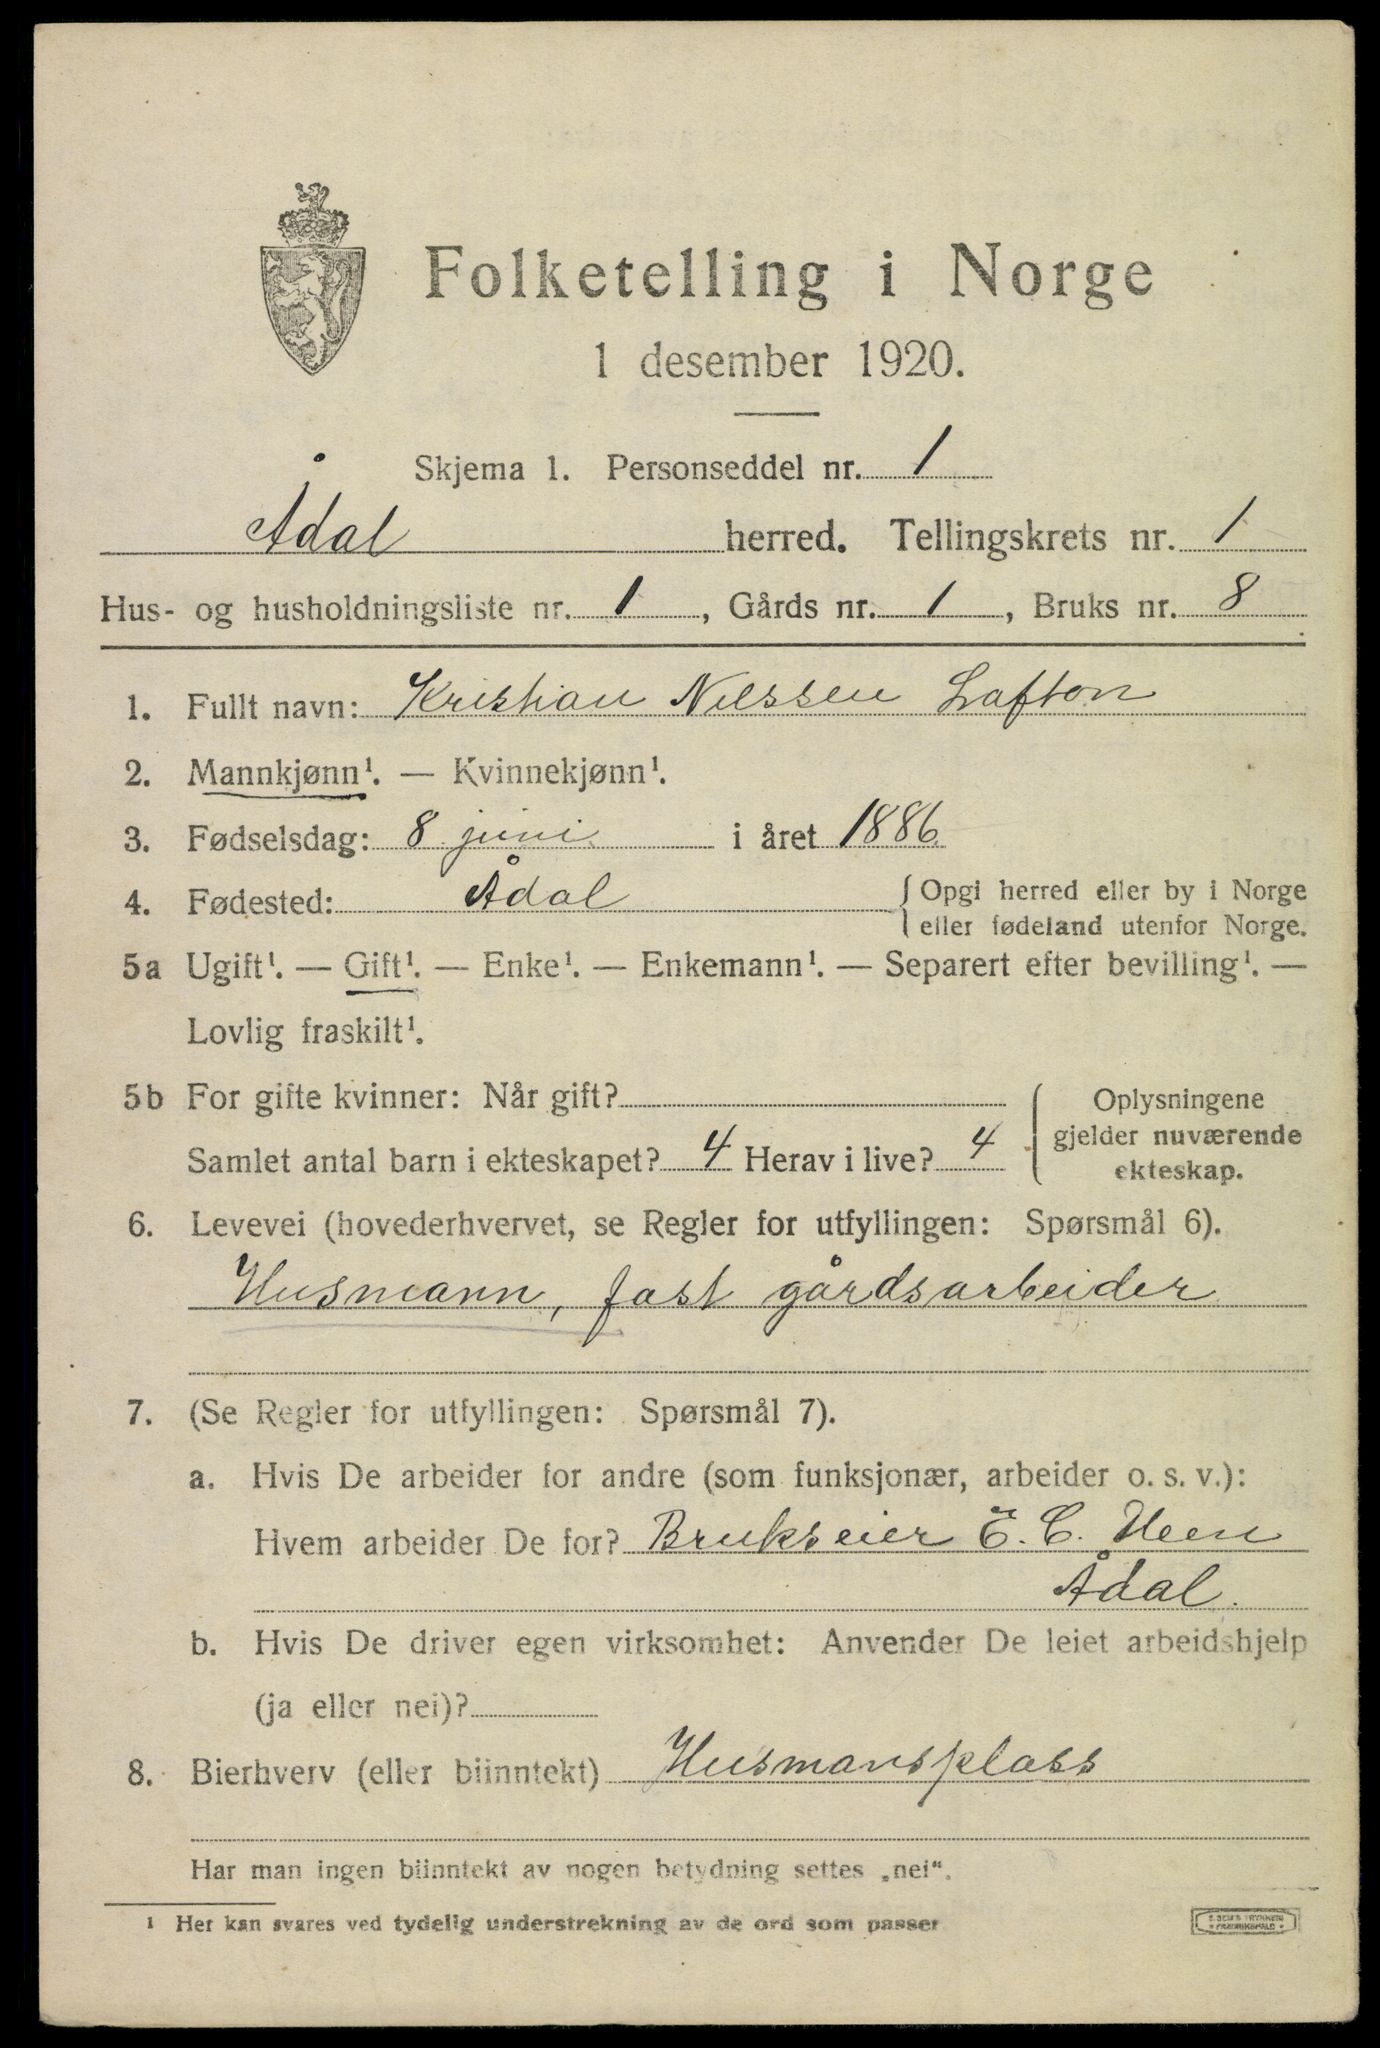 Folketelling i Norge
1 desember 1920.
Skjema 1. Personseddel nr. 1
Ådal herred. Tellingskrets nr. 1
Hus- og husholdningsliste nr. 1, Gårds nr. 1, Bruks nr. 8
1. Fullt navn: Kristian Nilssen Lafton
2. Mannkjønn¹. — Kvinnekjønn¹.
3. Fødselsdag: 8 juni i året 1886.
4. Fødested: Ådal { Opgi herred eller by i Norge
eller fødeland utenfor Norge.
5a Ugift¹. — Gift¹. — Enke¹. — Enkemann¹. — Separert efter bevilling¹. —
Lovlig fraskilt¹.
5b For gifte kvinner: Når gift? { Oplysningene
gjelder nuværende
Samlet antal barn i ekteskapet? 4 Herav i live? 4 ekteskap.
6. Levevei (hovederhvervet, se Regler for utfyllingen: Spørsmål 6).
Husmann, fast gårdsarbeider
7. (Se Regler for utfyllingen: Spørsmål 7).
a. Hvis De arbeider for andre (som funksjonær, arbeider o. s. v.):
Hvem arbeider De for? Brukseier E. C. Heen
Ådal.
b. Hvis De driver egen virksomhet: Anvender De leiet arbeidshjelp
(ja eller nei)?
8. Bierhverv (eller biinntekt) Husmansplass
Har man ingen biinntekt av nogen betydning settes „nei“.
¹ Her kan svares ved tydelig understrekning av de ord som passer
FREDRIKSHALD